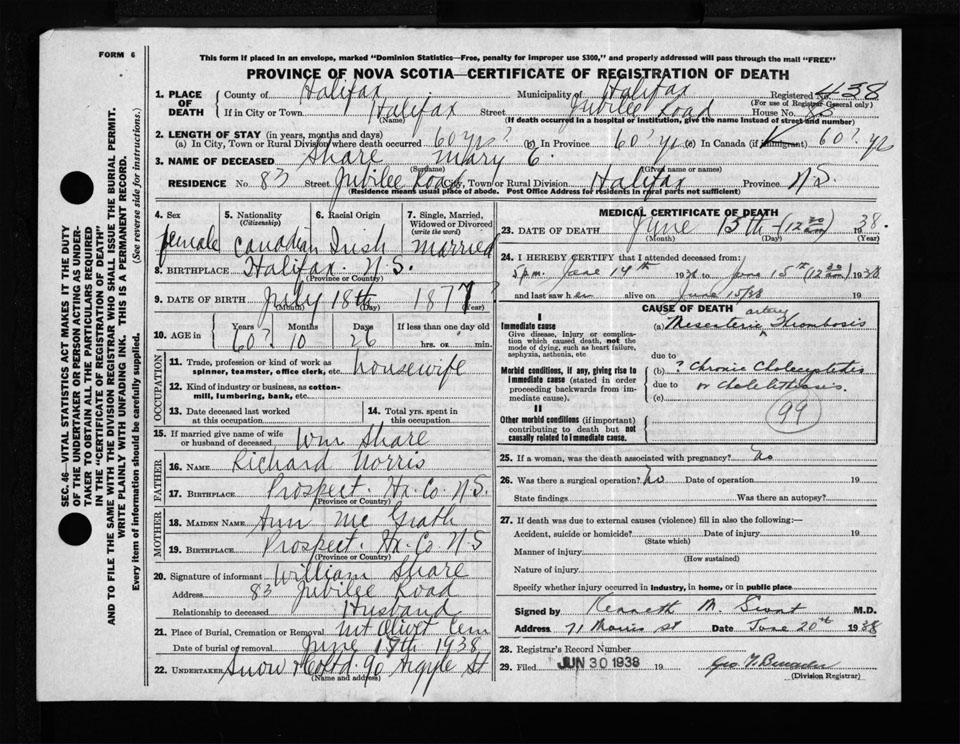 FORM 6
This form if placed in an envelope, marked "Dominion Statistics—Free, penalty for improper use $300," and properly addressed will pass through the mail "FREE"
PROVINCE OF NOVA SCOTIA—CERTIFICATE OF REGISTRATION OF DEATH
SEC. 46—VITAL STATISTICS ACT MAKES IT THE DUTY
OF THE UNDERTAKER OR PERSON ACTING AS UNDER-
TAKER TO OBTAIN ALL THE PARTICULARS REQUIRED
IN THE "CERTIFICATE OF REGISTRATION OF DEATH"
AND TO FILE THE SAME WITH THE DIVISION REGISTRAR WHO SHALL ISSUE THE BURIAL PERMIT.
WRITE PLAINLY WITH UNFADING INK. THIS IS A PERMANENT RECORD.
Every item of information should be carefully supplied. (See reverse side for instructions.)
1. PLACE OF DEATH County of Halifax Municipality of Halifax Registered No. 438
(For use of Registrar General only)
If in City or Town Halifax (Name) Street Jubilee Road House No. 83
(If death occurred in a hospital or institution, give the name instead of street and number)
2. LENGTH OF STAY (in years, months and days)
(a) In City, Town or Rural Division where death occurred 60 yrs? (b) In Province 60? yrs (c) In Canada (if immigrant) 60? yrs
3. NAME OF DECEASED Share (Surname) Mary E. (Given name or names)
RESIDENCE No. 83 Street Jubilee Road City, Town or Rural Division Halifax Province N.S.
(Residence means usual place of abode. Post Office Address for residents in rural parts not sufficient)
4. Sex female
5. Nationality (Citizenship) Canadian
6. Racial Origin Irish
7. Single, Married, Widowed or Divorced (write the word) Married
8. BIRTHPLACE Halifax N.S. (Province or Country)
9. DATE OF BIRTH July 18th 1877? (Month) (Day) (Year)
10. AGE in Years 60? Months 10 Days 26 If less than one day old hrs. or min.
OCCUPATION
11. Trade, profession or kind of work as spinner, teamster, office clerk, etc. housewife
12. Kind of industry or business, as cotton-mill, lumbering, bank, etc.
13. Date deceased last worked at this occupation
14. Total yrs. spent in this occupation
15. If married give name of wife or husband of deceased Wm Share
FATHER
16. NAME Richard Norris
17. BIRTHPLACE Prospect. Hx. Co. N.S. (Province or Country)
MOTHER
18. MAIDEN NAME Ann Mc Grath
19. BIRTHPLACE Prospect. Hx. Co N.S (Province or Country)
20. Signature of informant William Share
Address 83 Jubilee Road
Relationship to deceased Husband
21. Place of Burial, Cremation or Removal Mt Olivet Cem
Date of burial or removal June 17th 1938
22. UNDERTAKER Snow & Co Ltd. 90 Argyle St (Name and address)
MEDICAL CERTIFICATE OF DEATH
23. DATE OF DEATH June 15th (12 30 a.m.) 1938.
(Month) (Day) (Year)
24. I HEREBY CERTIFY that I attended deceased from:
5 p.m. June 14th 1938 to June 15th (12 30 a.m.) 1938
and last saw her alive on June 15/38 19
CAUSE OF DEATH
I
Immediate cause
Give disease, injury or complication which caused death, not the mode of dying, such as heart failure, asphyxia, asthenia, etc
(a) Mesenteric artery Thrombosis
due to
Morbid conditions, if any, giving rise to immediate cause (stated in order proceeding backwards from immediate cause)
(b) ? Chronic Cholecystitis
due to or cholelithiasis.
(c)
99
II
Other morbid conditions (if important) contributing to death but not causally related to immediate cause.
25. If a woman, was the death associated with pregnancy? No
26. Was there a surgical operation? No Date of operation 19
State findings Was there an autopsy?
27. If death was due to external causes (violence) fill in also the following:—
Accident, suicide or homicide? Date of injury 19
(State which)
Manner of injury
(How sustained)
Nature of injury
Specify whether injury occurred in industry, in home, or in public place
Signed by Kenneth M. M.D.
Address 71 Morris St Date June 20th 1938
28. Registrar's Record Number
29. Filed JUN 30 1938 19
(Division Registrar)